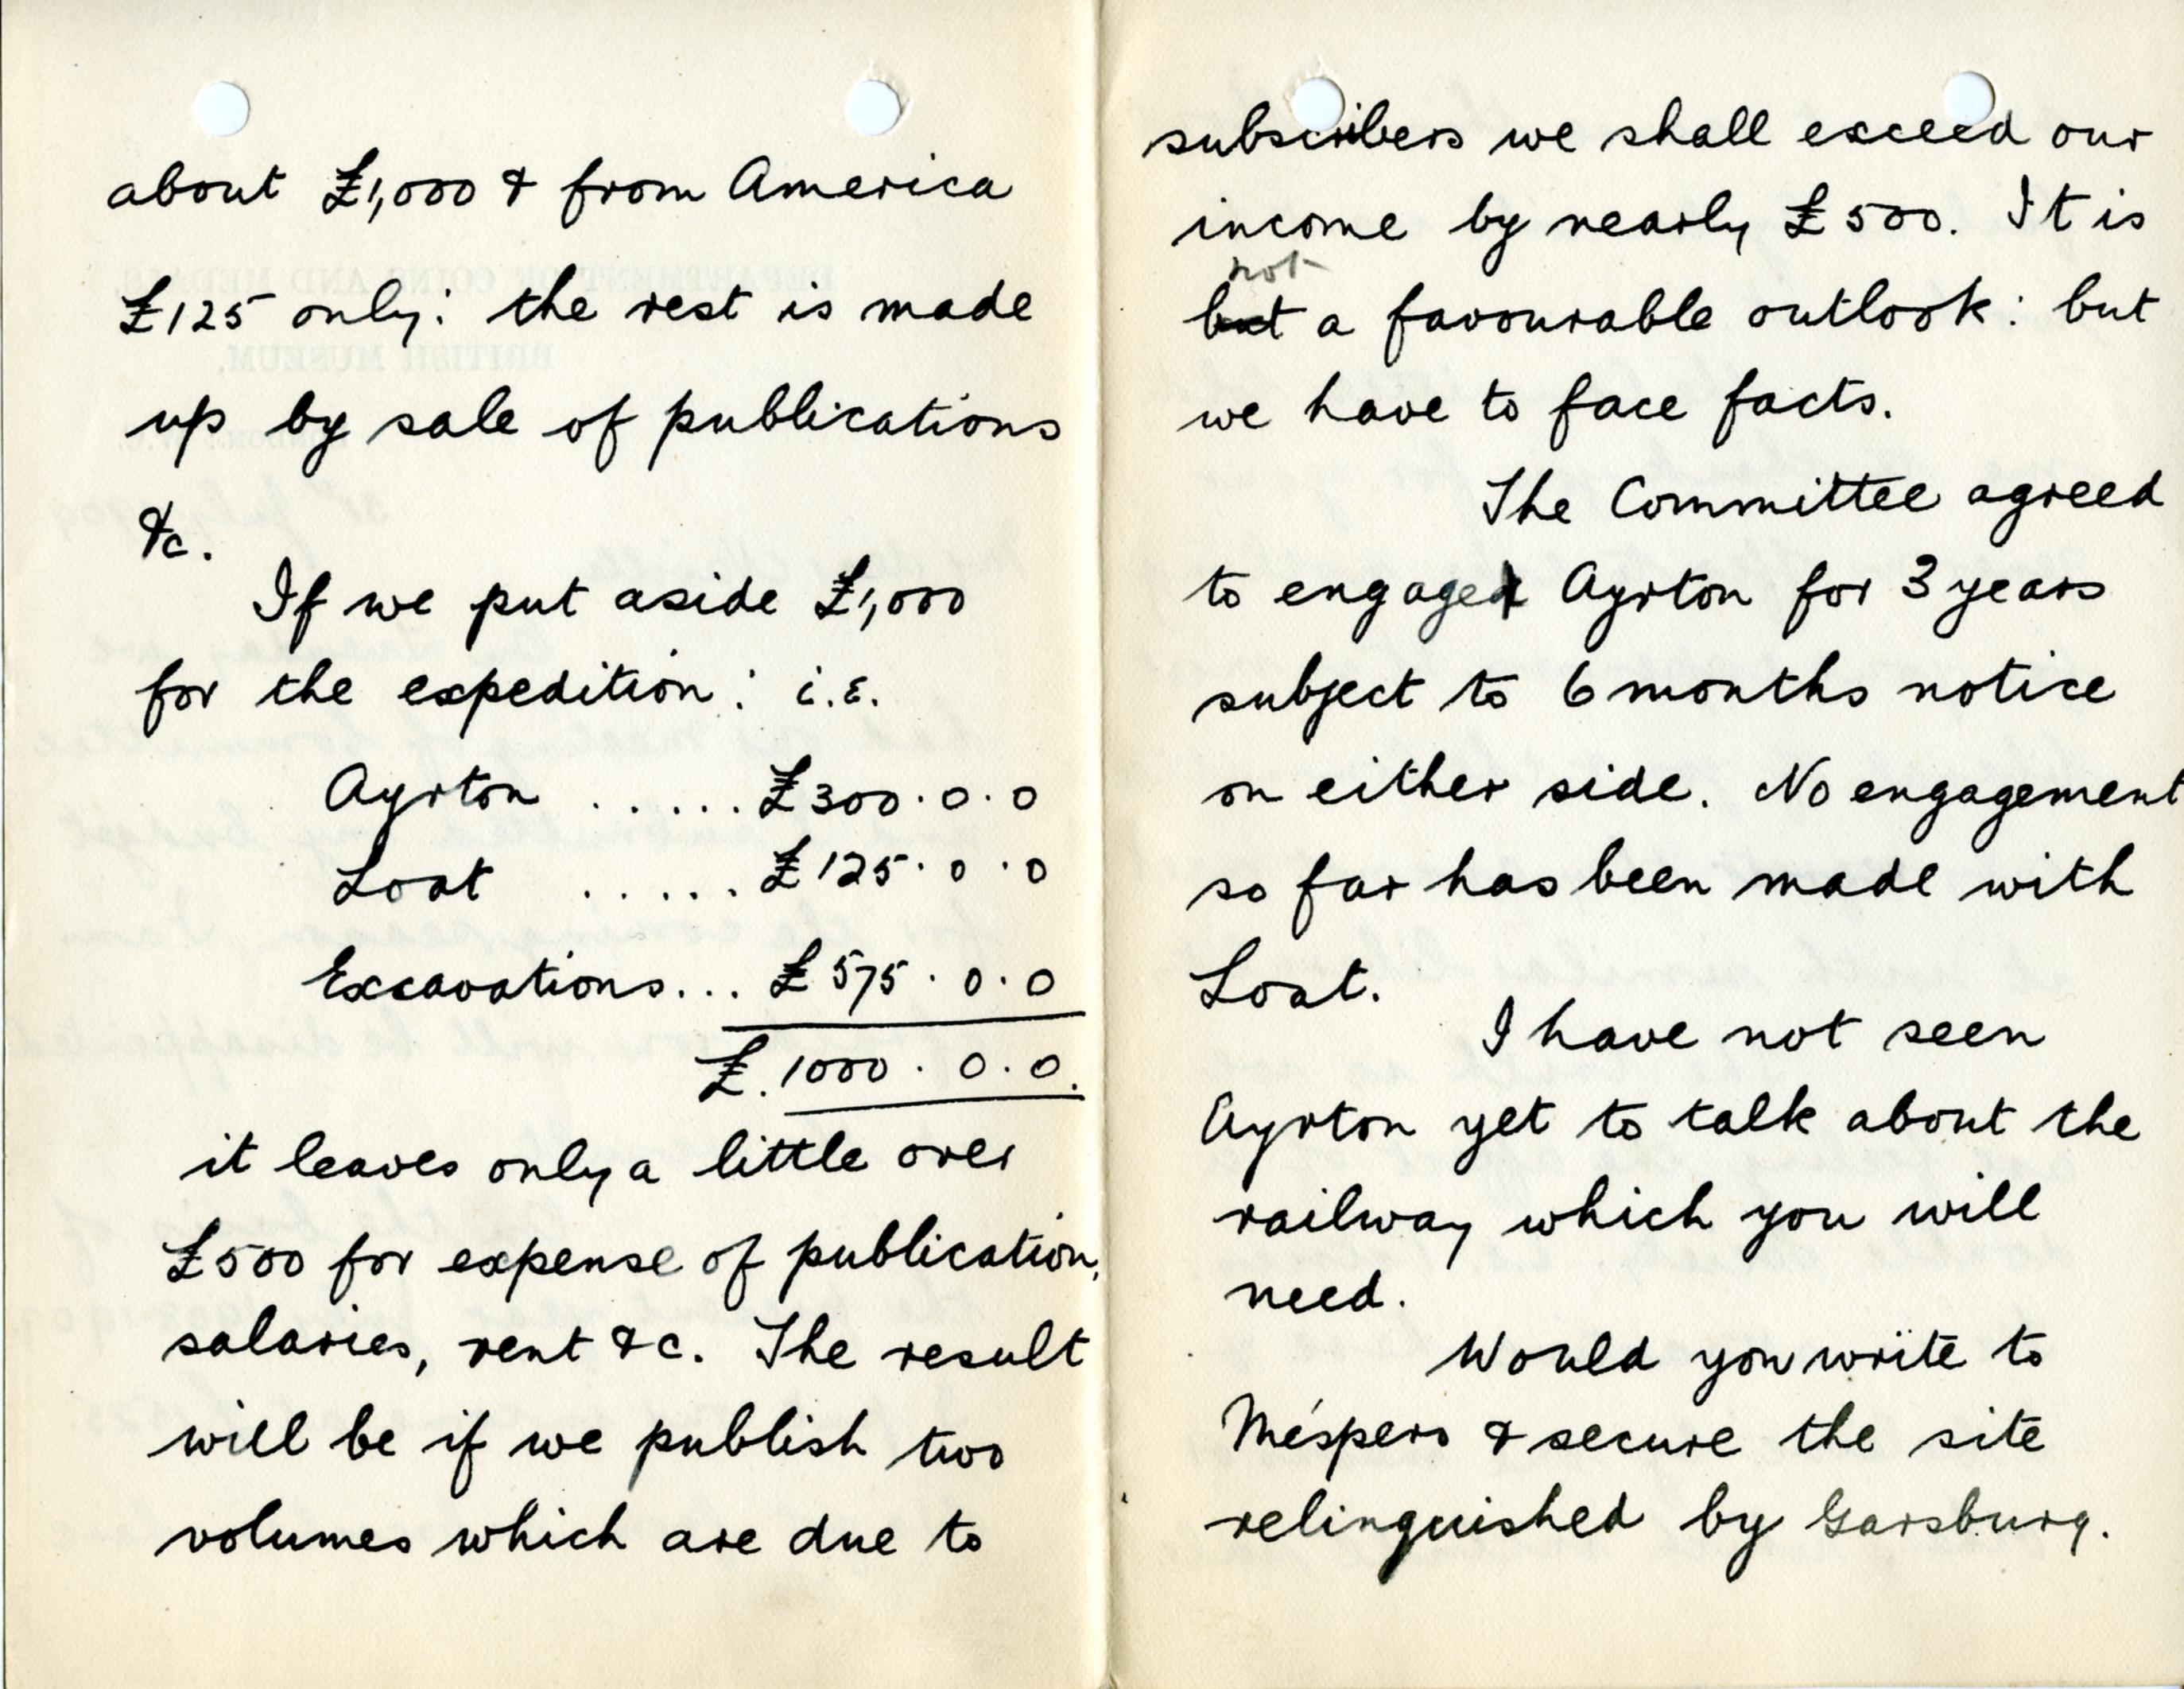 about £1,000 & from America
£125 only: the rest is made
up by sale of publications
&c.
If we put aside £1,000
for the expedition: i.e.
Ayrton ..... £300.0.0
Loat ..... £125.0.0
Excavations... £575.0.0
£.1000.0.0.
it leaves only a little over
£500 for expense of publication,
salaries, rent &c. The result
will be if we publish two
volumes which are due to
subscribers we shall exceed our
income by nearly £500. It is
not
but a favourable outlook: but
we have to face facts.
The Committee agreed
to engaged Ayrton for 3 years
subject to 6 months notice
on either side. No engagement
so far has been made with
Loat.
I have not seen
Ayrton yet to talk about the
railway which you will
need.
Would you write to
Méspero & secure the site
relinquished by Garsburg.